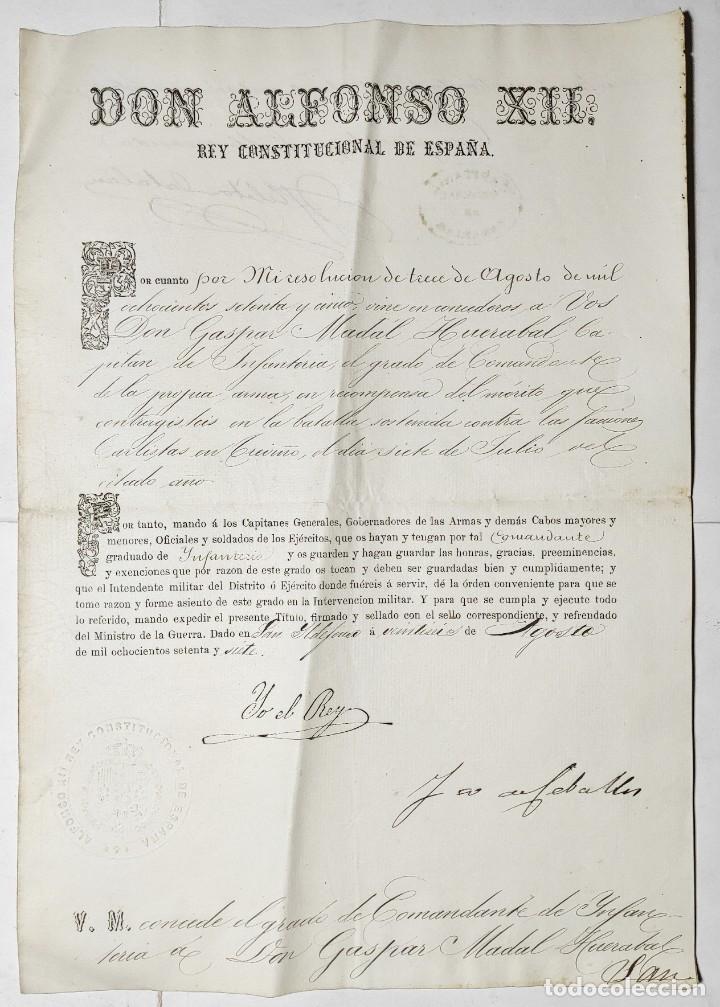 DON ALFONSO XII.
REY CONSTITUCIONAL DE ESPAÑA.
POR CUANTO por Mi resolucion de trece de Agosto de mil
ochocientos setenta y cinco, vine en concederos a Vos
Don Gaspar Madal Huerabal Ca-
pitan de Infanteria, el grado de Comandante
de la propia arma, en recompensa del mérito que
contragisteis en la batalla sostenida contra las facciones
Carlistas en Treviño, el dia siete de Julio del
citado año
POR tanto, mando á los Capitanes Generales, Gobernadores de las Armas y demás Cabos mayores y
menores, Oficiales y soldados de los Ejércitos, que os hayan y tengan por tal Comandante
graduado de Infanteria y os guarden y hagan guardar las honras, gracias, preeminencias,
y exenciones que por razon de este grado os tocan y deben ser guardadas bien y cumplidamente; y
que el Intendente militar del Distrito ó Ejército donde fuéreis á servir, dé la órden conveniente para que se
tome razon y forme asiento de este grado en la Intervencion militar. Y para que se cumpla y ejecute todo
lo referido, mando expedir el presente Título, firmado y sellado con el sello correspondiente, y refrendado
del Ministro de la Guerra. Dado en San Ildefonso á veintiseis de Agosto
de mil ochocientos setenta y siete.
Yo el Rey
ALFONSO XII REY CONSTITUCIONAL DE ESPAÑA
de Ceballos
V. M. concede el grado de Comandante de Infan-
teria á Don Gaspar Madal Huerabal
todocoleccion